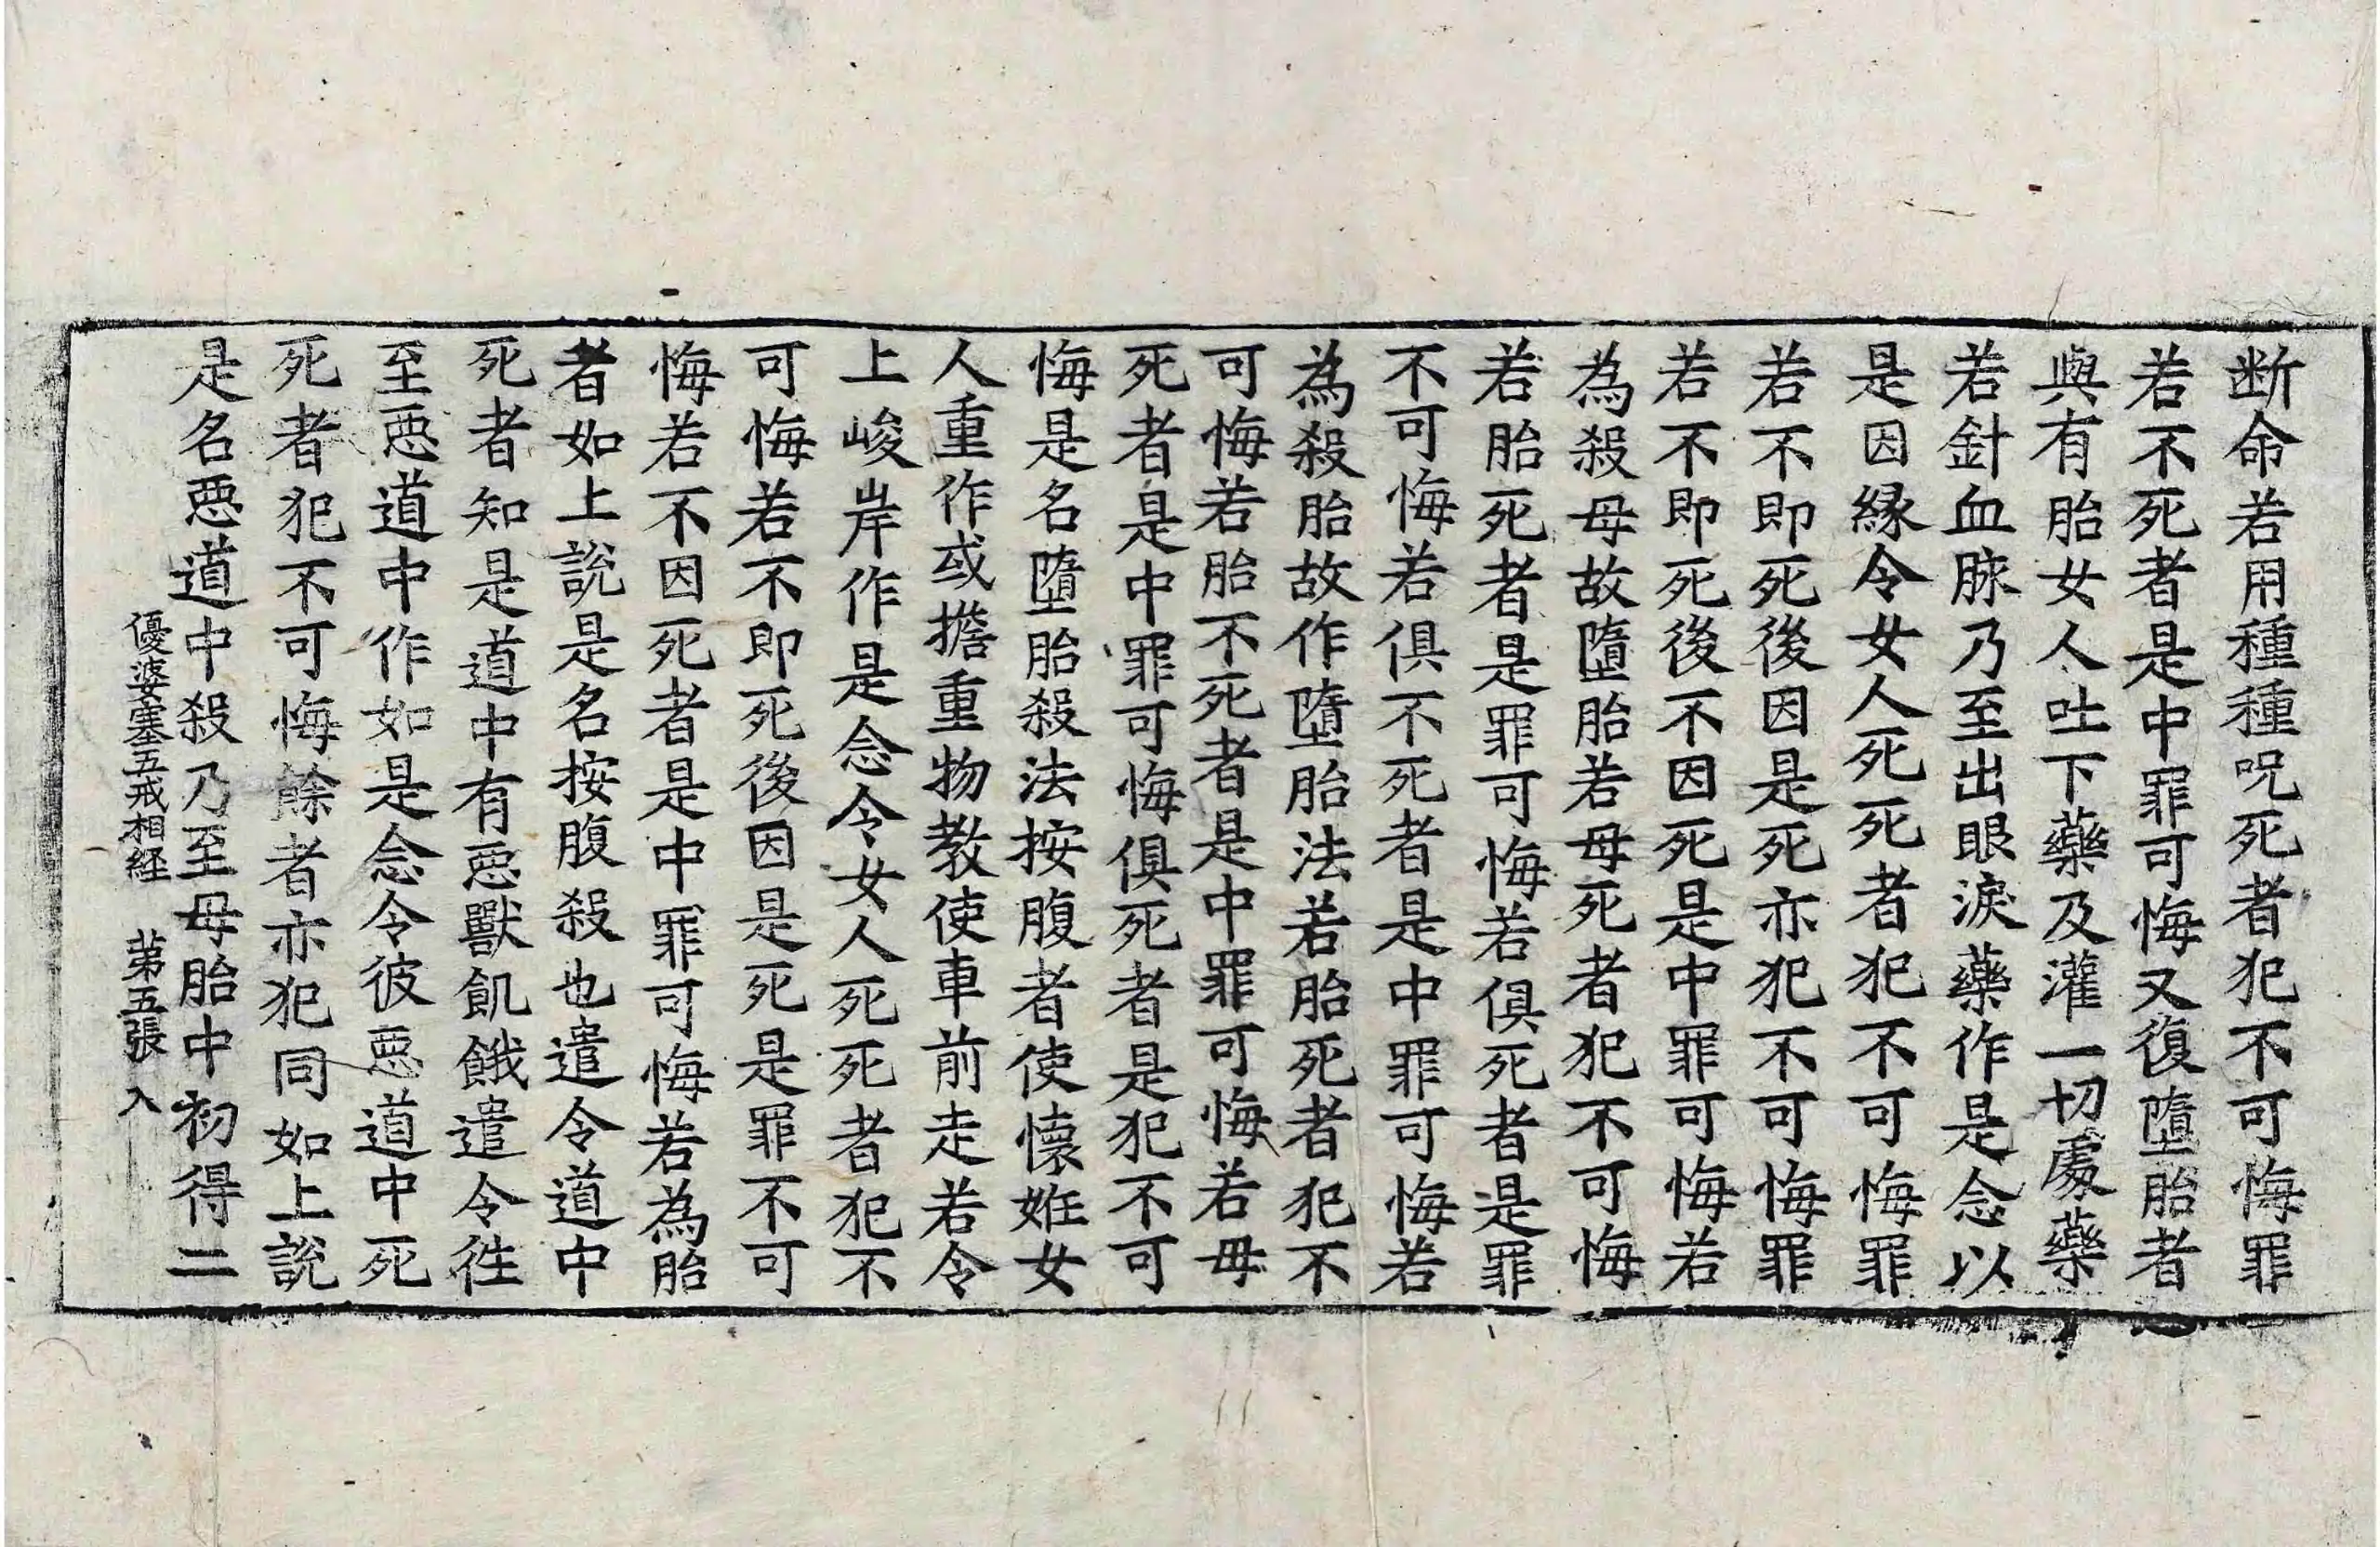 断命若用種種呪死者犯不可悔罪
若不死者是中罪可悔又復墮胎者
與有胎女人吐下藥及灌一切處藥
若針血脉乃至出眼淚藥作是念以
是因緣令女人死死者犯不可悔罪
若不即死後因是死亦犯不可悔罪
若不即死後不因死是中罪可悔若
為殺母故墮胎若母死者犯不可悔
若胎死者是罪可悔若俱死者是罪
不可悔若俱不死者是中罪可悔若
為殺胎故作墮胎法若胎死者犯不
可悔若胎不死者是中罪可悔若母
死者是中罪可悔俱死者是犯不可
悔是名墮胎殺法按腹者使懷姙女
人重作或擔重物教使車前走若令
上峻岸作是念令女人死死者犯不
可悔若不即死後因是死是罪不可
悔若不因死者是中罪可悔若為胎
者如上說是名按腹殺也遣令道中
死者知是道中有惡獸飢餓遣令徃
至惡道中作如是念令彼惡道中死
死者犯不可悔餘者亦犯同如上說
是名惡道中殺乃至母胎中初得二
優婆塞五戒相経 第五張 入